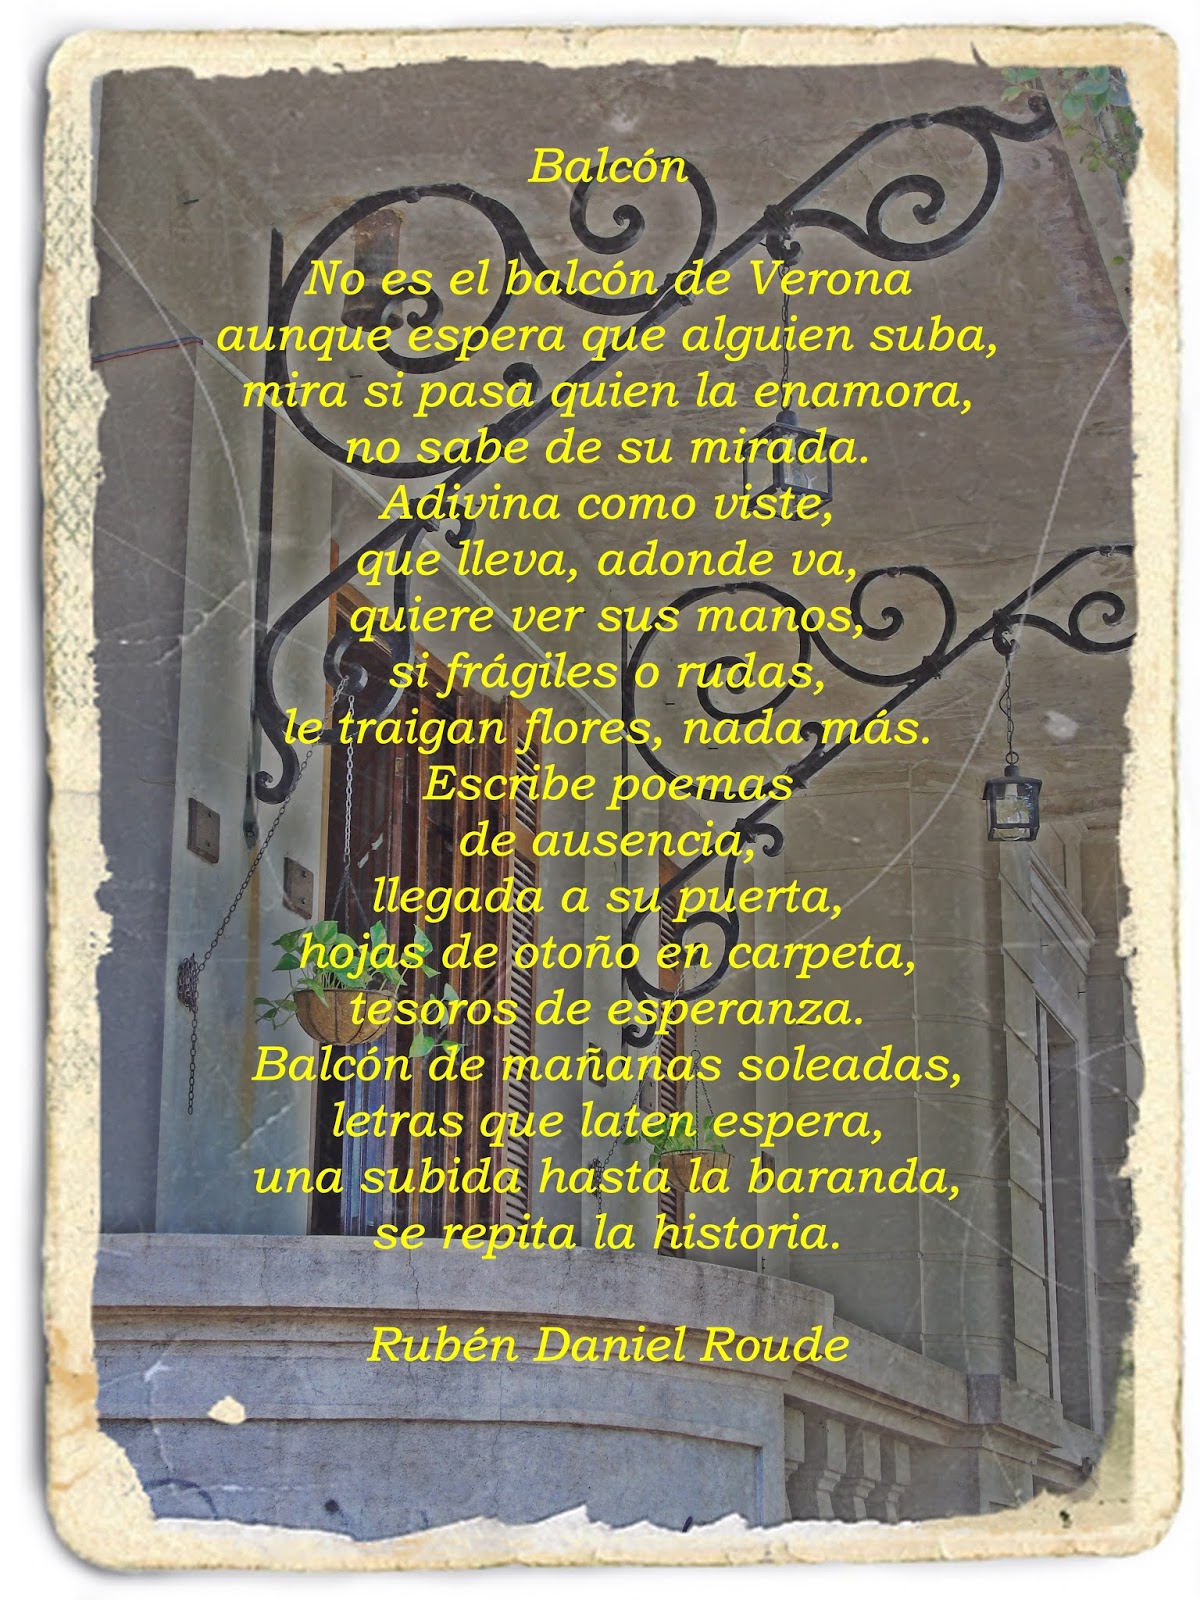 Balcón
No es el balcón de Verona
aunque espera que alguien suba,
mira si pasa quien la enamora,
no sabe de su mirada.
Adivina como viste,
que lleva, adonde va,
quiere ver sus manos,
si frágiles o rudas,
le traigan flores, nada más.
Escribe poemas
de ausencia,
llegada a su puerta,
hojas de otoño en carpeta,
tesoros de esperanza.
Balcón de mañanas soleadas,
letras que laten espera,
una subida hasta la baranda,
se repita la historia.
Rubén Daniel Roude